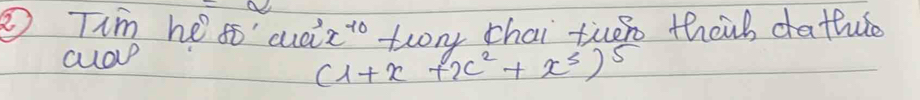 ② Tìm hệ số của x^10 trong khai triển thành đa thức
của
(1 + x + x² + x³)^5